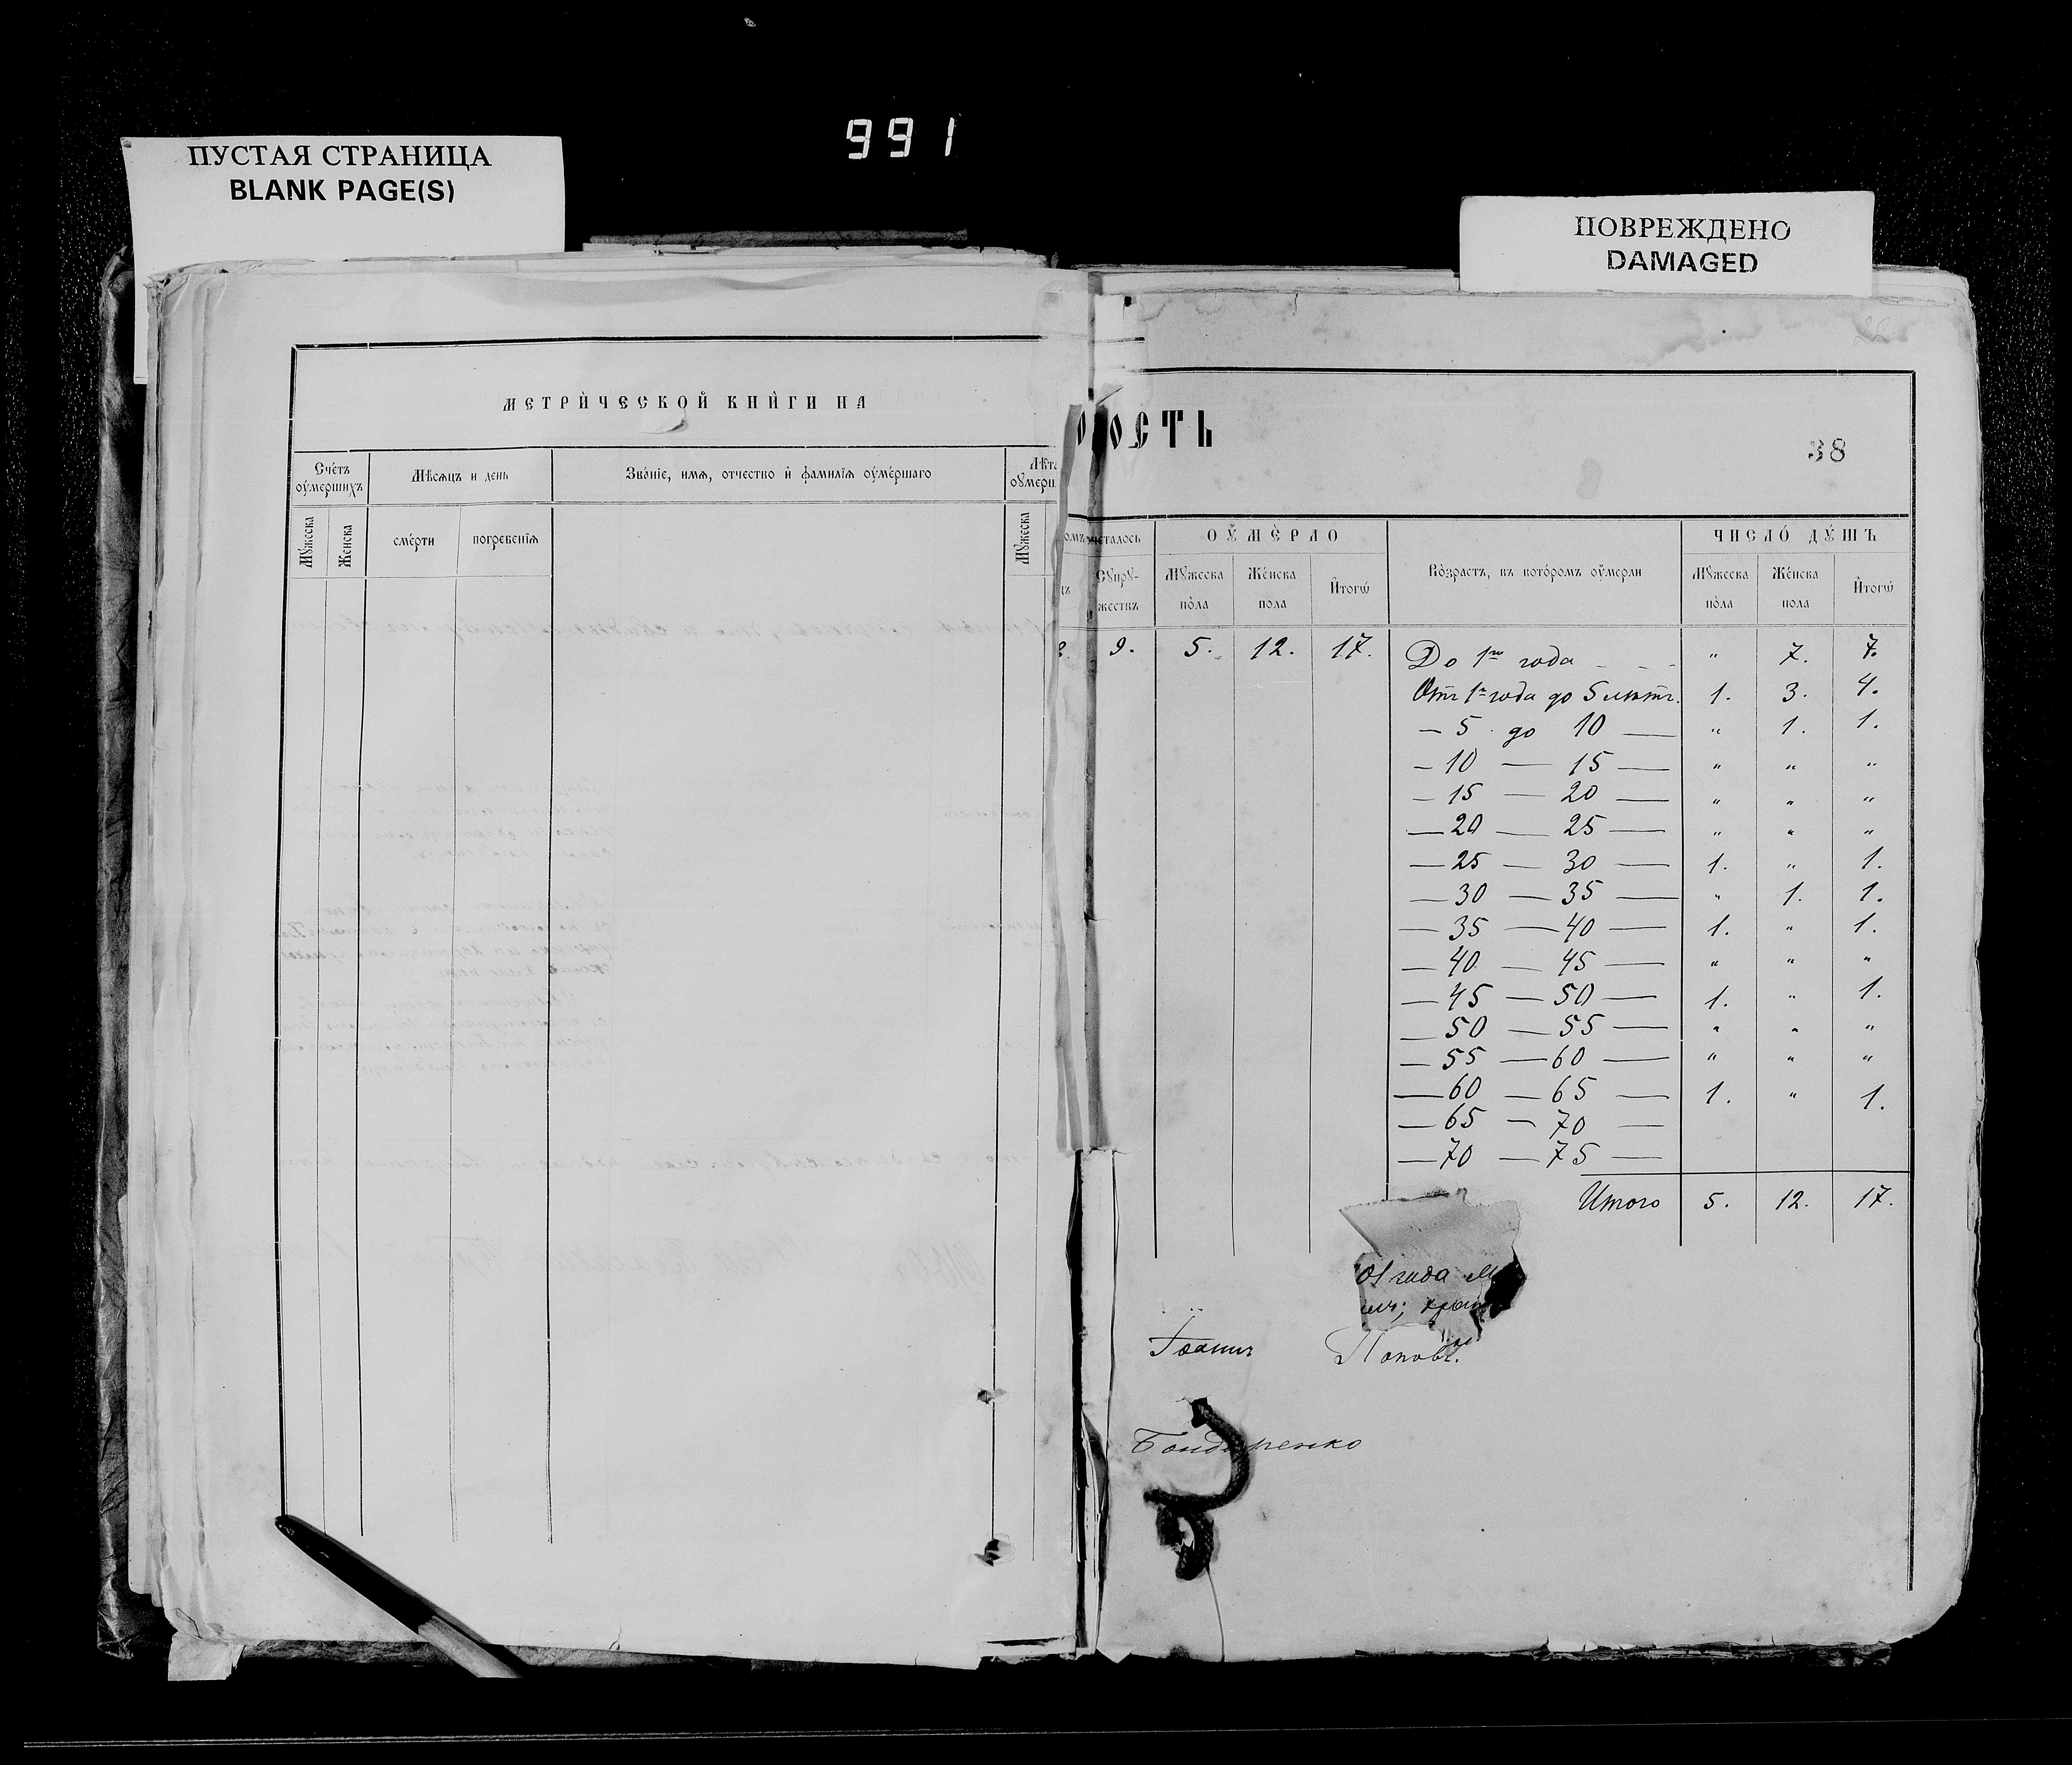 991
ПУСТАЯ СТРАНИЦА
BLANK PAGE(S)
ПОВРЕЖДЕНО
DAMAGED
МЕТРИ́ЧЕСКОЙ КНИ́ГИ НА
Сче́тъ ᲂу҆ме́ршихъ
Мѣ́сѧцъ и день
Зва́нїе, имѧ, ѻтчество и҆ фамилїѧ ᲂу҆ме́ршаго
Лѣта ᲂу҆мерш
Мꙋжеска
Женска
сме́рти
погребе́нїѧ
Мꙋжеска
ОСТЬ
38
четалось
Сꙋпрꙋ-
жествъ
ОУ҆МЕРЛО
Мꙋжеска по́ла
Же́нска пола
И҆тогѡ
Во́зрастъ, въ кото́ромъ ᲂу҆мерли
ЧИСЛО́ ДꙊ́ШЪ
Мꙋжеска по́ла
Же́нска пола
И҆тогѡ
9. 5. 12. 17. До 1го года - - - " 7. 7.
Отъ 1го года до 5 лѣтъ. 1. 3. 4.
— 5 до 10 — " 1. 1.
— 10 — 15 — " " "
— 15 — 20 — " " "
— 20 — 25 — " " "
— 25 — 30 — 1. " 1.
— 30 — 35 — " 1. 1.
— 35 — 40 — 1. " 1.
— 40 — 45 — " " "
— 45 — 50 — 1. " 1.
— 50 — 55 — " " "
— 55 — 60 — " " "
— 60 — 65 — 1. " 1.
— 65 — 70 —
— 70 — 75 —
Итого 5. 12. 17.
года
Іоаннъ Поповъ.
Бондаренко